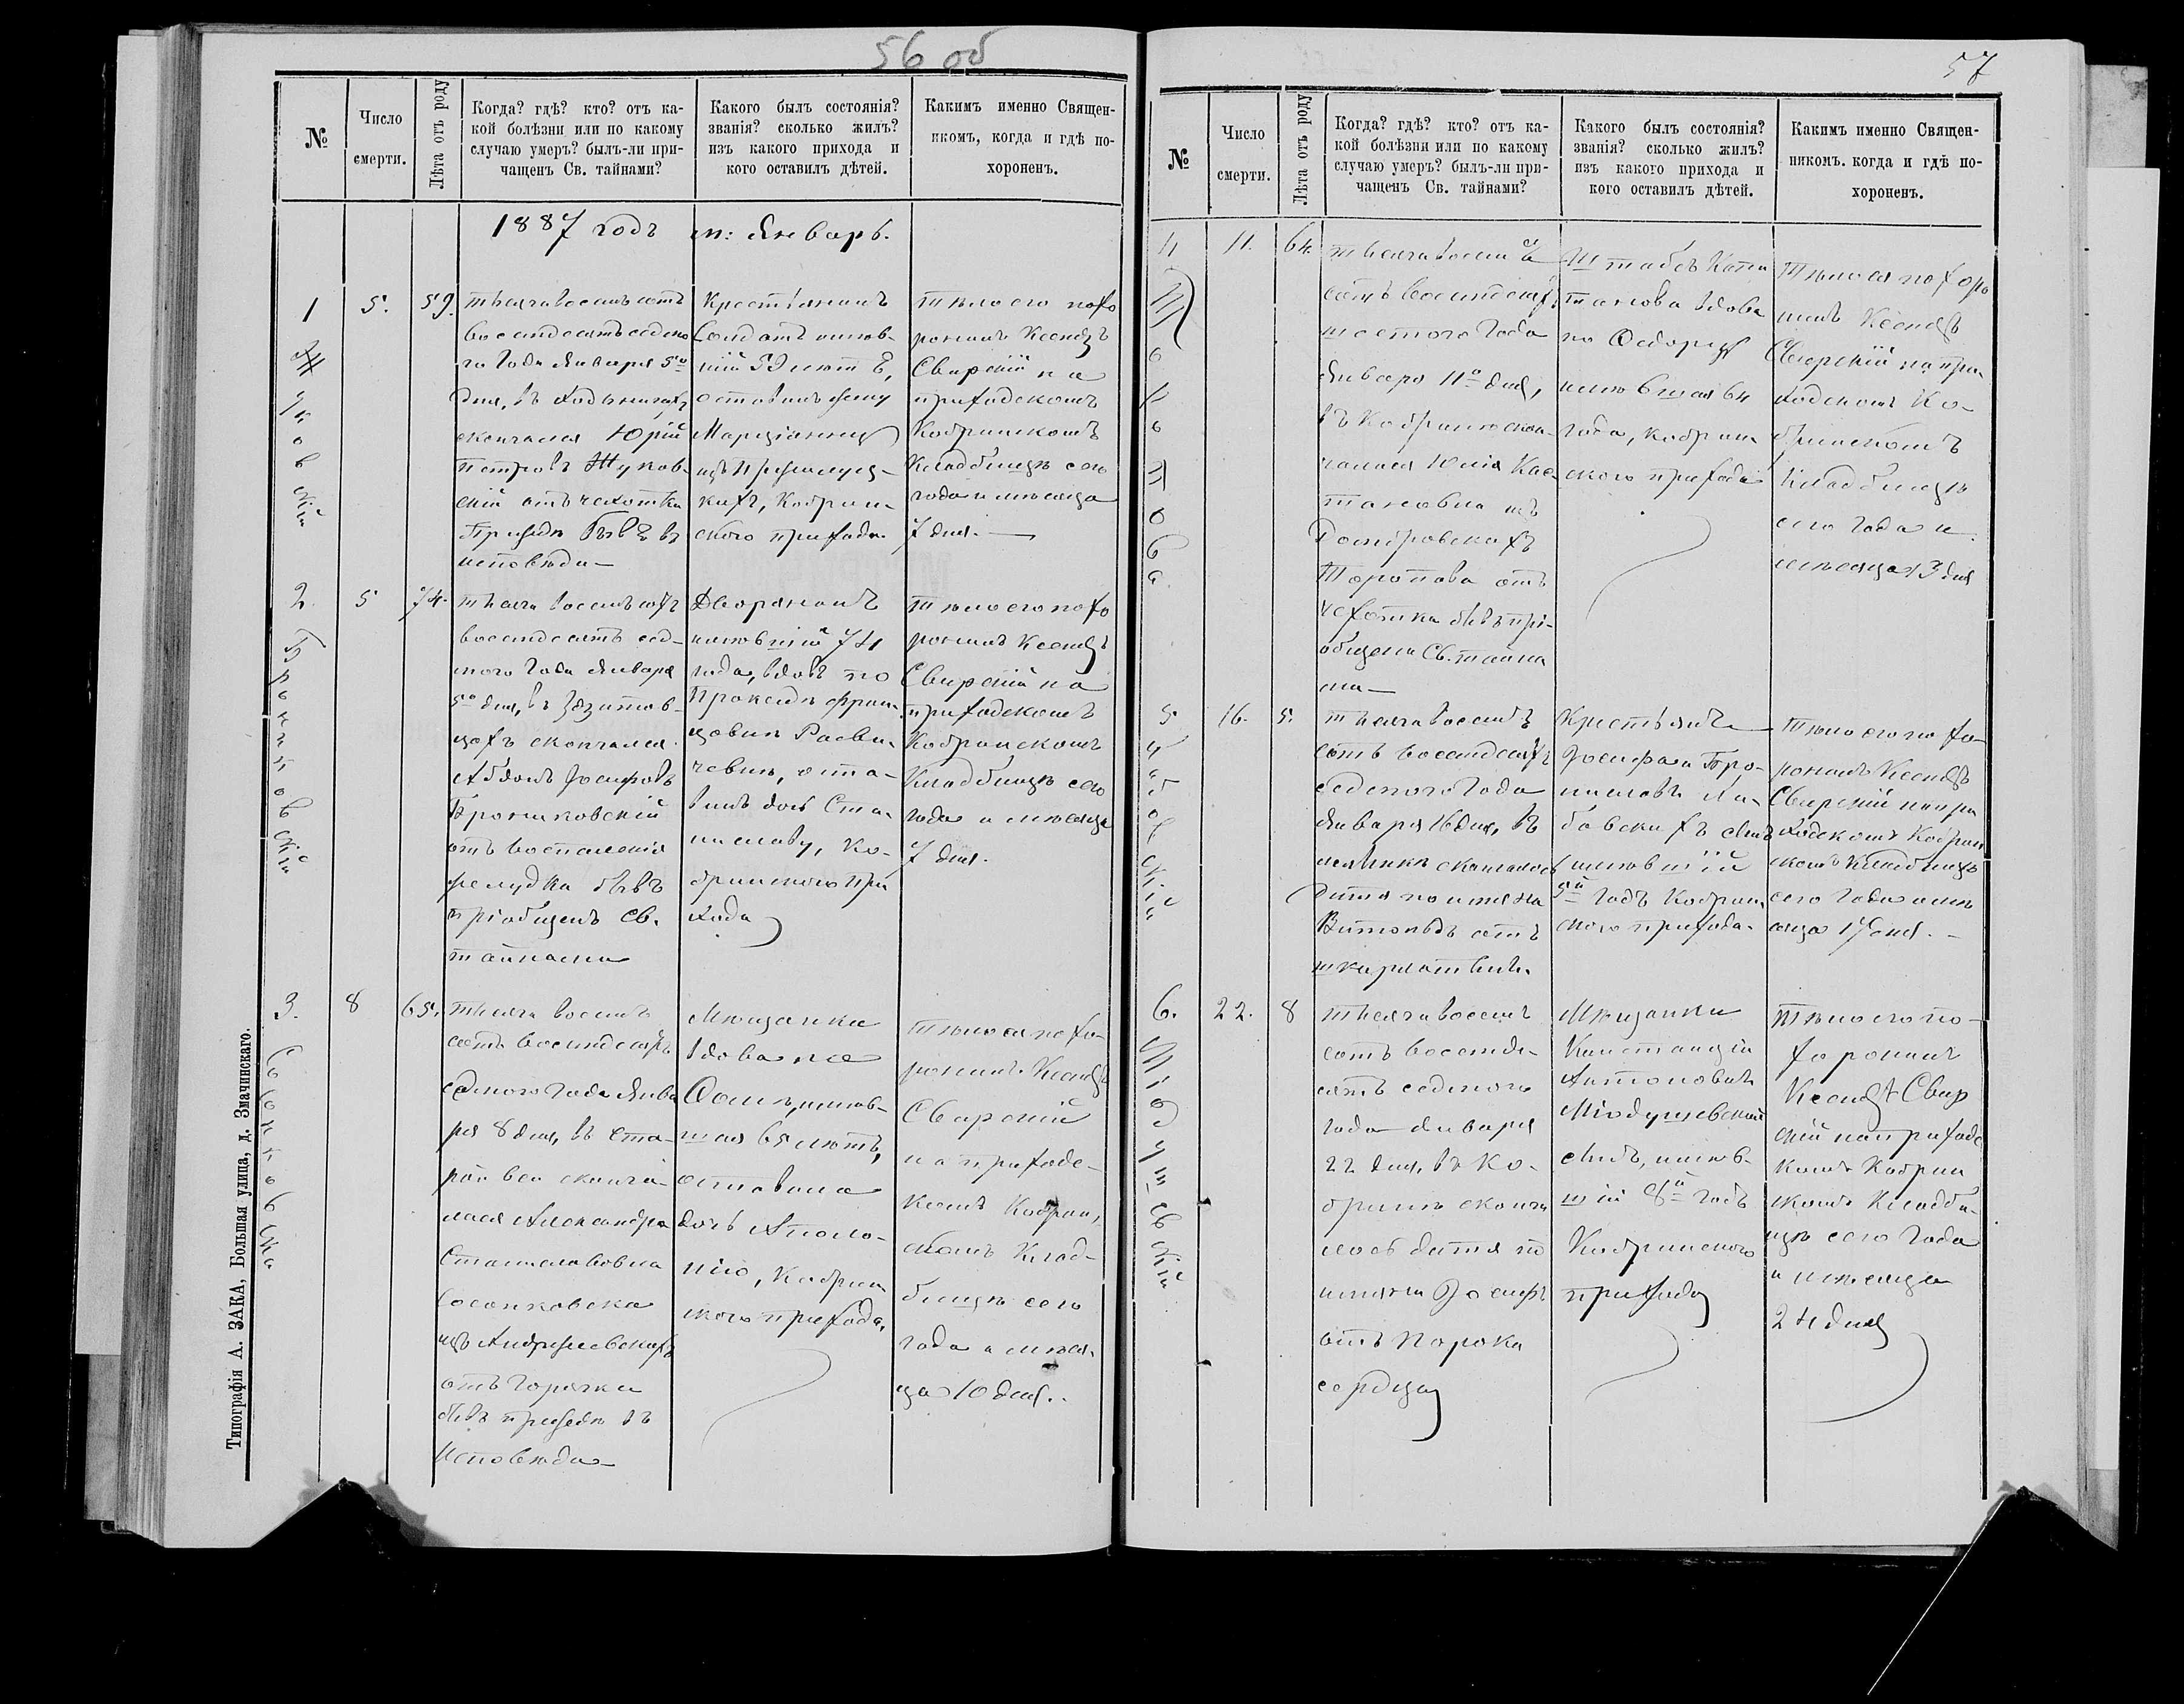 56 об
№
Число
смерти.
Лѣта отъ роду
Когда? гдѣ? кто? отъ ка-
кой болѣзни или по какому
случаю умеръ? былъ-ли при-
чащенъ Св. тайнами?
Какого былъ состоянія?
званія? сколько жилъ?
изъ какого прихода и
кого оставилъ дѣтей.
Какимъ именно Священ-
никомъ, когда и гдѣ по-
хороненъ.
1887 годъ м: Январь.
1
Жуковскій
5.
59.
тысяча восемьсотъ
восемдесятъ седмо
го Года Января 5го
дня, въ
скончался Юрій
Петровъ Жуков-
скій отъ чахотки
бывъ въ
исповѣди —
Крестьянинъ
Солдатъ имѣв-
шій 59 лѣтъ,
оставилъ жену
Марціанну
изъ
кихъ, Кобрин-
скаго прихода.
тѣло его похо
ронилъ Ксендзъ
Свирскій на
приходскомъ
Кобринскомъ
Кладбищѣ сего
года и мѣсяца
7 дня. —
2.
Брониковскій
5
74.
тысяча восемьсотъ
восемдесятъ сед-
мого Года Января
5го дня, въ
цахъ скончался
Абдонъ Іосифовъ
Брониковскій
отъ воспаленія
желудка бывъ
пріобщенъ Св.
тайнами
Дворянинъ
имѣвшій 74
года, вдовъ по
Пракседѣ Фран-
цовнѣ
оста-
вилъ дочь Ста-
ниславу, Ко-
бринского При
хода
тѣло его похо
ронилъ Ксендзъ
Свирскій на
приходскомъ
Кобринскомъ
Кладбищѣ сего
года и мѣсяца
7 дня.
3.
Сосонковска
8
65.
тысяча восемь
сотъ восемдесятъ
седмого Года Янва
ря 8 дня, въ Ста-
рой вси сконча-
лася Александра
Станиславовна
Сосонковска
изъ Андржеевскихъ
отъ Горячки
бывъ въ
Исповѣди —
Мѣщанка
вдова по
имѣв-
шая 65 лѣтъ,
оставила
дочь Аполо-
нію, Кобрин
ского прихода.
тѣло ея похо-
ронилъ Ксендзъ
Свирскій
на приходс-
комъ Кобрин-
скомъ Клад-
бищѣ сего
года и мѣся-
ца 10 дня.
Типографія А. ЗАКА, Большая улица, д. Значинскаго.
57
№
Число
смерти.
Лѣта отъ роду
Когда? гдѣ? кто? отъ ка-
кой болѣзни или по какому
случаю умеръ? былъ-ли при-
чащенъ Св. тайнами?
Какого былъ состоянія?
званія? сколько жилъ?
изъ какого прихода и
кого оставилъ дѣтей.
Какимъ именно Священ-
никомъ. когда и гдѣ по-
хороненъ.
4
Торопова
11.
64.
тысяча восемь
сотъ восемдесятъ
Года
Января 11го дня,
въ Кобринѣ скон-
чалася Юлія Кае-
тановна изъ
Домбровскихъ
Торопова отъ
чахотки бывъ прі-
общена Св. тайна
ми —
Штабсъ Капи
танова вдова
по Ѳедорѣ
имѣвшая 64
года, Кобрин
ского прихода
тѣло ея похоро
нилъ Ксендзъ
Свирскій на при-
ходскомъ Ко-
бринскомъ
Кладбищѣ
сего года и
мѣсяца 13 дня
5
16.
5.
тысяча восемь
сотъ восемдесятъ
седмого Года
Января 16 дня, въ
скончалось
дитя по имени
Витольдъ отъ
шкарлатины.
Крестьянъ
Іосифата
сынъ
имѣвшій
5й годъ Кобрин-
ского прихода.
тѣло его похо-
ронилъ Ксендзъ
Свирскій на при
ходскомъ Кобрин
скомъ Кладбищѣ
сего Года и мѣ
сяца 17 дня. —
6.
Міодушевскій
22.
8
тысяча восемь
сотъ восемде-
сятъ седмого
года Января
22 дня, въ Ко-
бринѣ сконча
лось дитя по
имени Іосифъ
отъ порока
сердца
Мѣщанки
Констанціи
Антоновны
Міодушевской
сынъ, имѣв-
шій 8й годъ
Кобринского
прихода
тѣло его по-
хоронилъ
Ксендзъ Свир
скій на приходс
комъ Кобрин
скомъ Кладби-
щѣ сего Года
и мѣсяца
24 дня